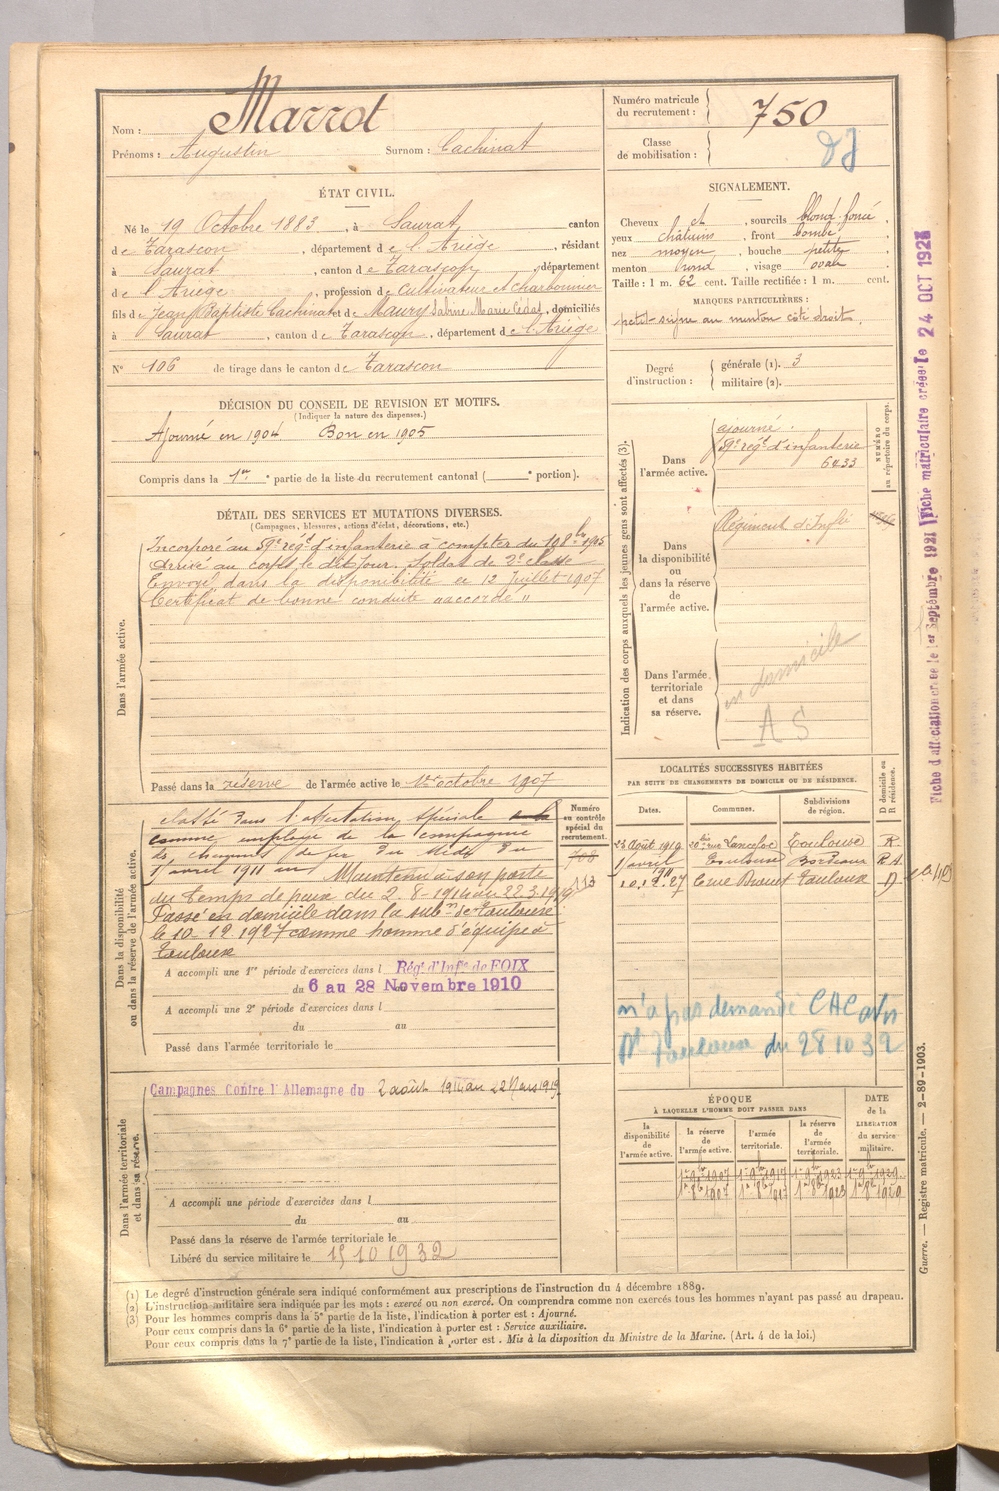 Nom : Marrot
Prénoms : Augustin Surnom : Cachinat
Numéro matricule du recrutement : 750
Classe de mobilisation :
ÉTAT CIVIL.
Né le 19 Octobre 1883, à Saurat, canton
de Tarascon, département de l'Ariège, résidant
à Saurat, canton de Tarascon, département
de l'Ariège, profession de Cultivateur et Charbonnier
fils de Jean Baptiste Cachinat et de Maury Sabine Marie, domiciliés
à Saurat, canton de Tarascon, département de l'Ariège
N° 106 de tirage dans le canton de Tarascon
SIGNALEMENT.
Cheveux et, sourcils blond foncé,
yeux châtains, front bombé,
nez moyen, bouche petite,
menton rond, visage ovale
Taille : 1 m. 62 cent. Taille rectifiée : 1 m. cent.
MARQUES PARTICULIÈRES :
petit signe au menton côté droit.
Degré d'instruction : générale (1). 3
militaire (2).
DÉCISION DU CONSEIL DE REVISION ET MOTIFS.
(Indiquer la nature des dispenses.)
Ajourné en 1904 Bon en 1905
Compris dans la 1re partie de la liste du recrutement cantonal ( e portion).
DÉTAIL DES SERVICES ET MUTATIONS DIVERSES.
(Campagnes, blessures, actions d'éclat, décorations, etc.)
Dans l'armée active.
Incorporé au 59e régt d'infanterie à compter du 8bre 1905
Arrivé au corps le dit jour. Soldat de 2e classe
Envoyé dans la disponibilité le 12 Juillet 1907
Certificat de bonne conduite "accordé"
Passé dans la réserve de l'armée active le 1er octobre 1907
Indication des corps auxquels les jeunes gens sont affectés (3).
NUMÉRO au répertoire du corps.
Dans l'armée active.
ajourné.
59e régt d'infanterie
6433
Dans la disponibilité ou dans la réserve de l'armée active.
Régiment d'Infie
Dans l'armée territoriale et dans sa réserve.
en domicile
A S
Dans la disponibilité ou dans la réserve de l'armée active.
Numéro au contrôle spécial du recrutement.
708
113
classé dans l'affectation spéciale
comme employé de la compagnie
des chemins de fer du Midi du
1er avril 1911 au Maintenu à son poste
du temps de paix du 2-8-1914 au 22.3.1919
Passé en domicile dans la subon de Toulouse
le 10-12.1927 comme homme d'équipe à
Toulouse
A accompli une 1re période d'exercices dans l Régt d'Infie de FOIX
du 6 au 28 Novembre 1910
A accompli une 2e période d'exercices dans l
du au
Passé dans l'armée territoriale le
LOCALITÉS SUCCESSIVES HABITÉES
PAR SUITE DE CHANGEMENTS DE DOMICILE OU DE RÉSIDENCE.
Dates. Communes. Subdivisions de région. D domicile ou R résidence.
23 Août 1910 Toulouse R.
1er avril 1911 Toulouse Bordeaux R.A.
10.12.27 Toulouse D
n'a pas demandé CAC
Toulouse du 28 10 32
Dans l'armée territoriale et dans sa réserve.
Campagnes Contre l'Allemagne du 2 août 1914 au 22 Mars 1919.
A accompli une période d'exercices dans l
du au
Passé dans la réserve de l'armée territoriale le
Libéré du service militaire le 15 10 1932
ÉPOQUE
À LAQUELLE L'HOMME DOIT PASSER DANS
DATE de la LIBÉRATION du service militaire.
la disponibilité de l'armée active. la réserve de l'armée active. l'armée territoriale. la réserve de l'armée territoriale.
(1) Le degré d'instruction générale sera indiqué conformément aux prescriptions de l'instruction du 4 décembre 1889.
(2) L'instruction militaire sera indiquée par les mots : exercé ou non exercé. On comprendra comme non exercés tous les hommes n'ayant pas passé au drapeau.
(3) Pour les hommes compris dans la 5e partie de la liste, l'indication à porter est : Ajourné.
Pour ceux compris dans la 6e partie de la liste, l'indication à porter est : Service auxiliaire.
Pour ceux compris dans la 7e partie de la liste, l'indication à porter est . Mis à la disposition du Ministre de la Marine. (Art. 4 de la loi.)
Fiche d'affectation créée le 1er Septembre 1921 Fiche matriculaire créée le 24 OCT 1928
Guerre. — Registre matricule. — 2-89-1903.